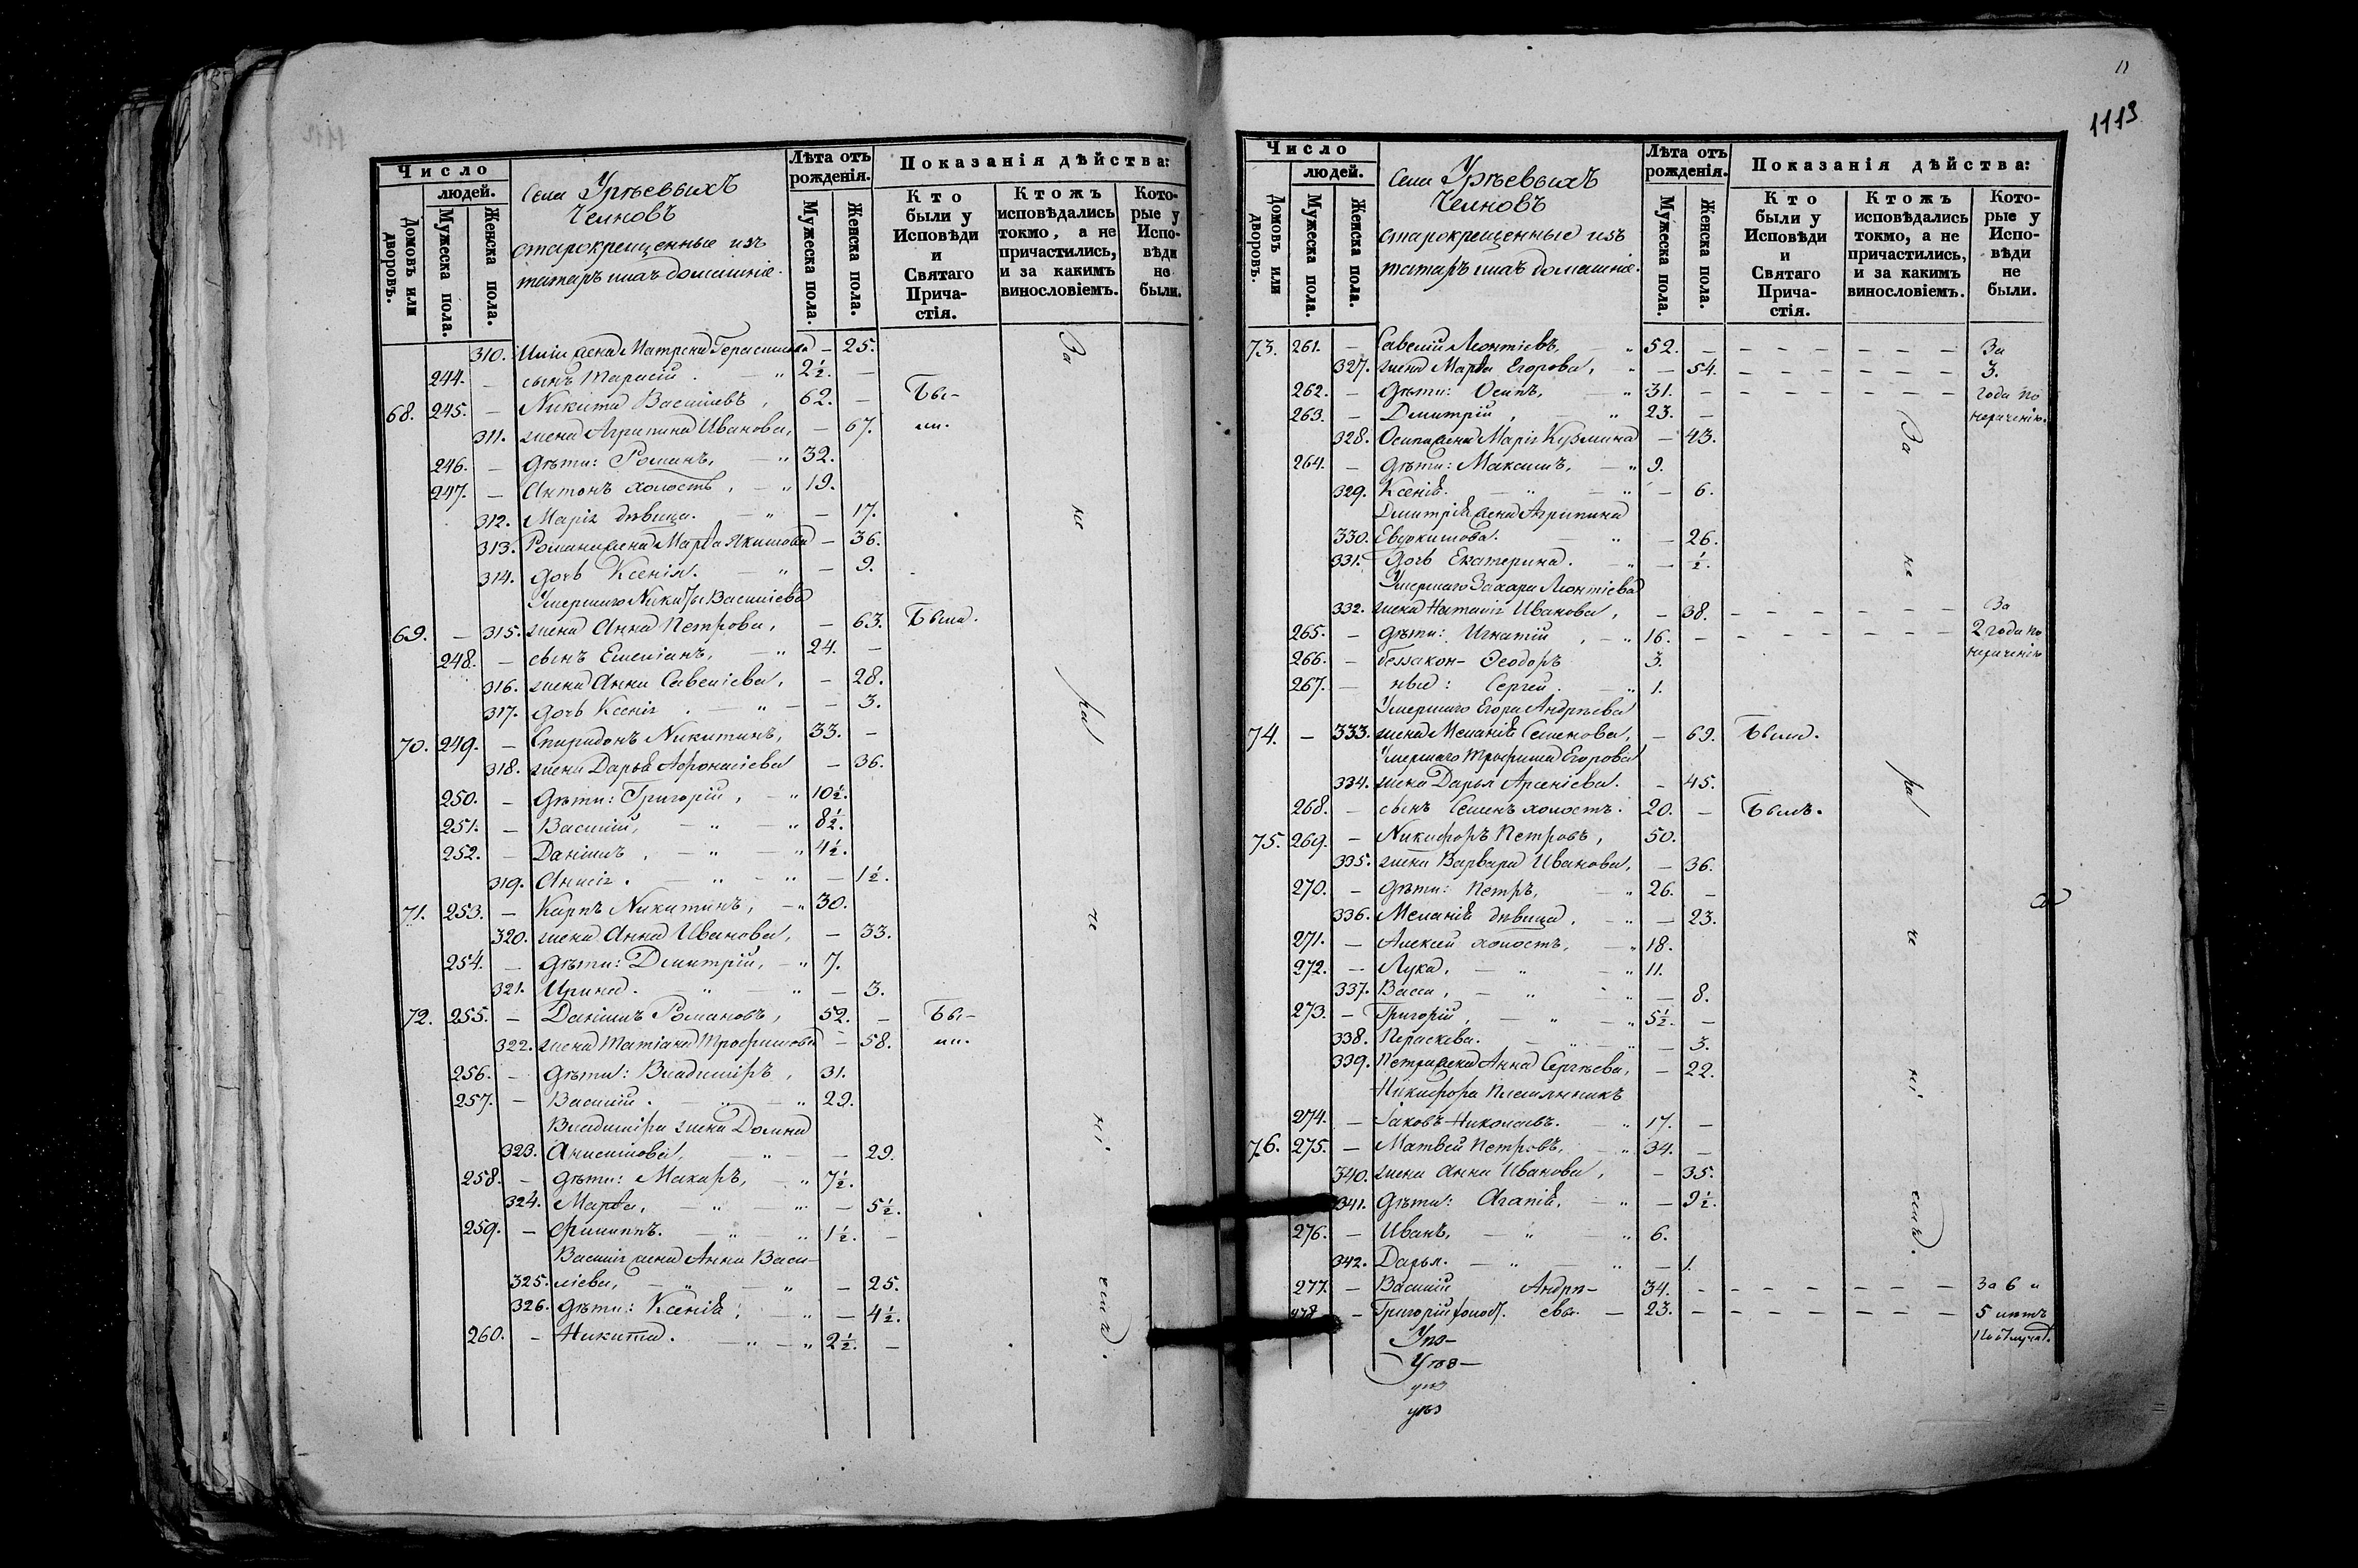 Число
людей.
Домовъ или дворовъ.
Мужеска пола.
Женска пола.
Села Урѣевыхъ
Челновъ
старокрещенные изъ
татаръ ихъ домашніе.
Лѣта отъ рожденія.
Мужеска пола.
Женска пола.
Показанія дѣйства:
Кто были у Исповѣди и Святаго Причастія.
Ктожъ исповѣдались токмо, а не причастились, и за какимъ винословіемъ.
Которые у Исповѣди не были.
310. жена Матрена Герасимова — 25.
244. — сынъ Тарасій. — " 2½. —
68. 245. — Никита Васильевъ, 62. — Бы-
311. жена Агрипина Иванова, — 67. ли.
246. — Дѣти: Романъ, — " 32.
247. — Антонъ холостъ, — " 19.
312. Марія дѣвица. — " — 17.
313. Романа жена Марѳа Якимова — 36.
314. дочь Ксенія. — " — 9.
Умершаго Никиты Васильева
69. — 315. жена Анна Петрова, — 63. Была.
248. — сынъ Емеліанъ, — " 24. —
316. жена Анна Савеліева, — 28.
317. дочь Ксенія. — " — — 3.
70. 249. — Спиридонъ Никитинъ, 33. —
318. жена Дарья Афонасіева — 36.
250. — Дѣти: Григорій, — " 10½.
251. — Василій, — " — " 8½.
252. — Даніилъ, — " — " 4½.
319. Анисія. — " — " — 1½.
71. 253. — Карпъ Никитинъ, — " 30.
320. жена Анна Иванова, — 33.
254. — Дѣти: Димитрій, — " 7.
321. Ирина. — " — " — 3.
72. 255. — Даніилъ Романовъ, 52. — Бы-
322. жена Татіана Трофимова — 58. ли.
256. — Дѣти: Владиміръ, 31.
257. — Василій. — " — " 29.
Владиміра жена Домна
323. Анисимова, — " — — 29.
258. — Дѣти: Макаръ, — " 7½.
324. Марѳа, — " — " — 5½.
259. — Филиппъ. — " — " 1½. —
Василія жена Анна Васи-
325. ліева, — " — " — 25.
326. Дѣти: Ксенія, — " — 4½.
260. — Никита. — " — " 2½. —
За
не
ра
че
ні
емъ.
1113
Число
людей.
Домовъ или дворовъ.
Мужеска пола.
Женска пола.
Села Урѣевыхъ
Челновъ
старокрещенные изъ
татаръ ихъ домашніе.
Лѣта отъ рожденія.
Мужеска пола.
Женска пола.
Показанія дѣйства:
Кто были у Исповѣди и Святаго Причастія.
Ктожъ исповѣдались токмо, а не причастились, и за какимъ винословіемъ.
Которые у Исповѣди не были.
73. 261. — Савелій Леонтіевъ, " 52. — — — — — — — За
327. жена Марѳа Егорова, " — 54. — — — — — — 3.
262. — Дѣти: Осипъ, — " 31. — — — — — — — года по
263. — Димитрій, — " 23. — нераченію.
328. Осипа жена Марія Кузмина — 43.
264. — Дѣти: Максимъ, — " 9.
329. Ксенія. — " — " — 6.
Димитрія жена Агрипина
330. Евдокимова. — " — 26.
331. Дочь Екатерина. — " — ½.
Умершаго Захара Леонтіева
332. жена Наталія Иванова, — 38. — — — — — — За
265. — дѣти: Игнатій, — " 16. — — — — — — — 2 года по
266. — беззакон- Ѳеодоръ 3. нераченію
267. — ные: Сергей. — " 1.
Умершаго Егора Андрѣева
74. — 333. жена Меланія Семенова, — 69. Была.
Умершаго Трофима Егорова
334. жена Дарья Арсеніева. — 45.
268. — сынъ Семенъ холостъ. 20. — Былъ.
75. 269. — Никифоръ Петровъ, 50.
335. жена Варвара Иванова, — 36.
270. — дѣти: Петръ, — " 26. —
336. Меланія дѣвица, — " — 23.
271. — Алексей холостъ, — " 18.
272. — Лука, — " — " 11.
337. Васса, — " — " — 8.
273. — Григорій, — " — " 5½. —
338. Пераскева. — " — " — 3.
339. Петра жена Анна Сергѣева, — 22.
Никифора племянникъ
274. — Іаковъ Николаевъ. — " 17. —
76. 275. — Матвей Петровъ, — " 34. —
340. жена Анна Иванова, — 35.
341. дѣти: Агапія, — " — 9½.
276. — Иванъ, — " — " 6.
342. Дарья. — " — " — 1.
277. — Василій Андрѣ- 34. — — — — — — — За 6 и
278. — Григорій холост. евы. — 23. — — — — — — — 5 лѣтъ
За
не
ра
че
ні
емъ.